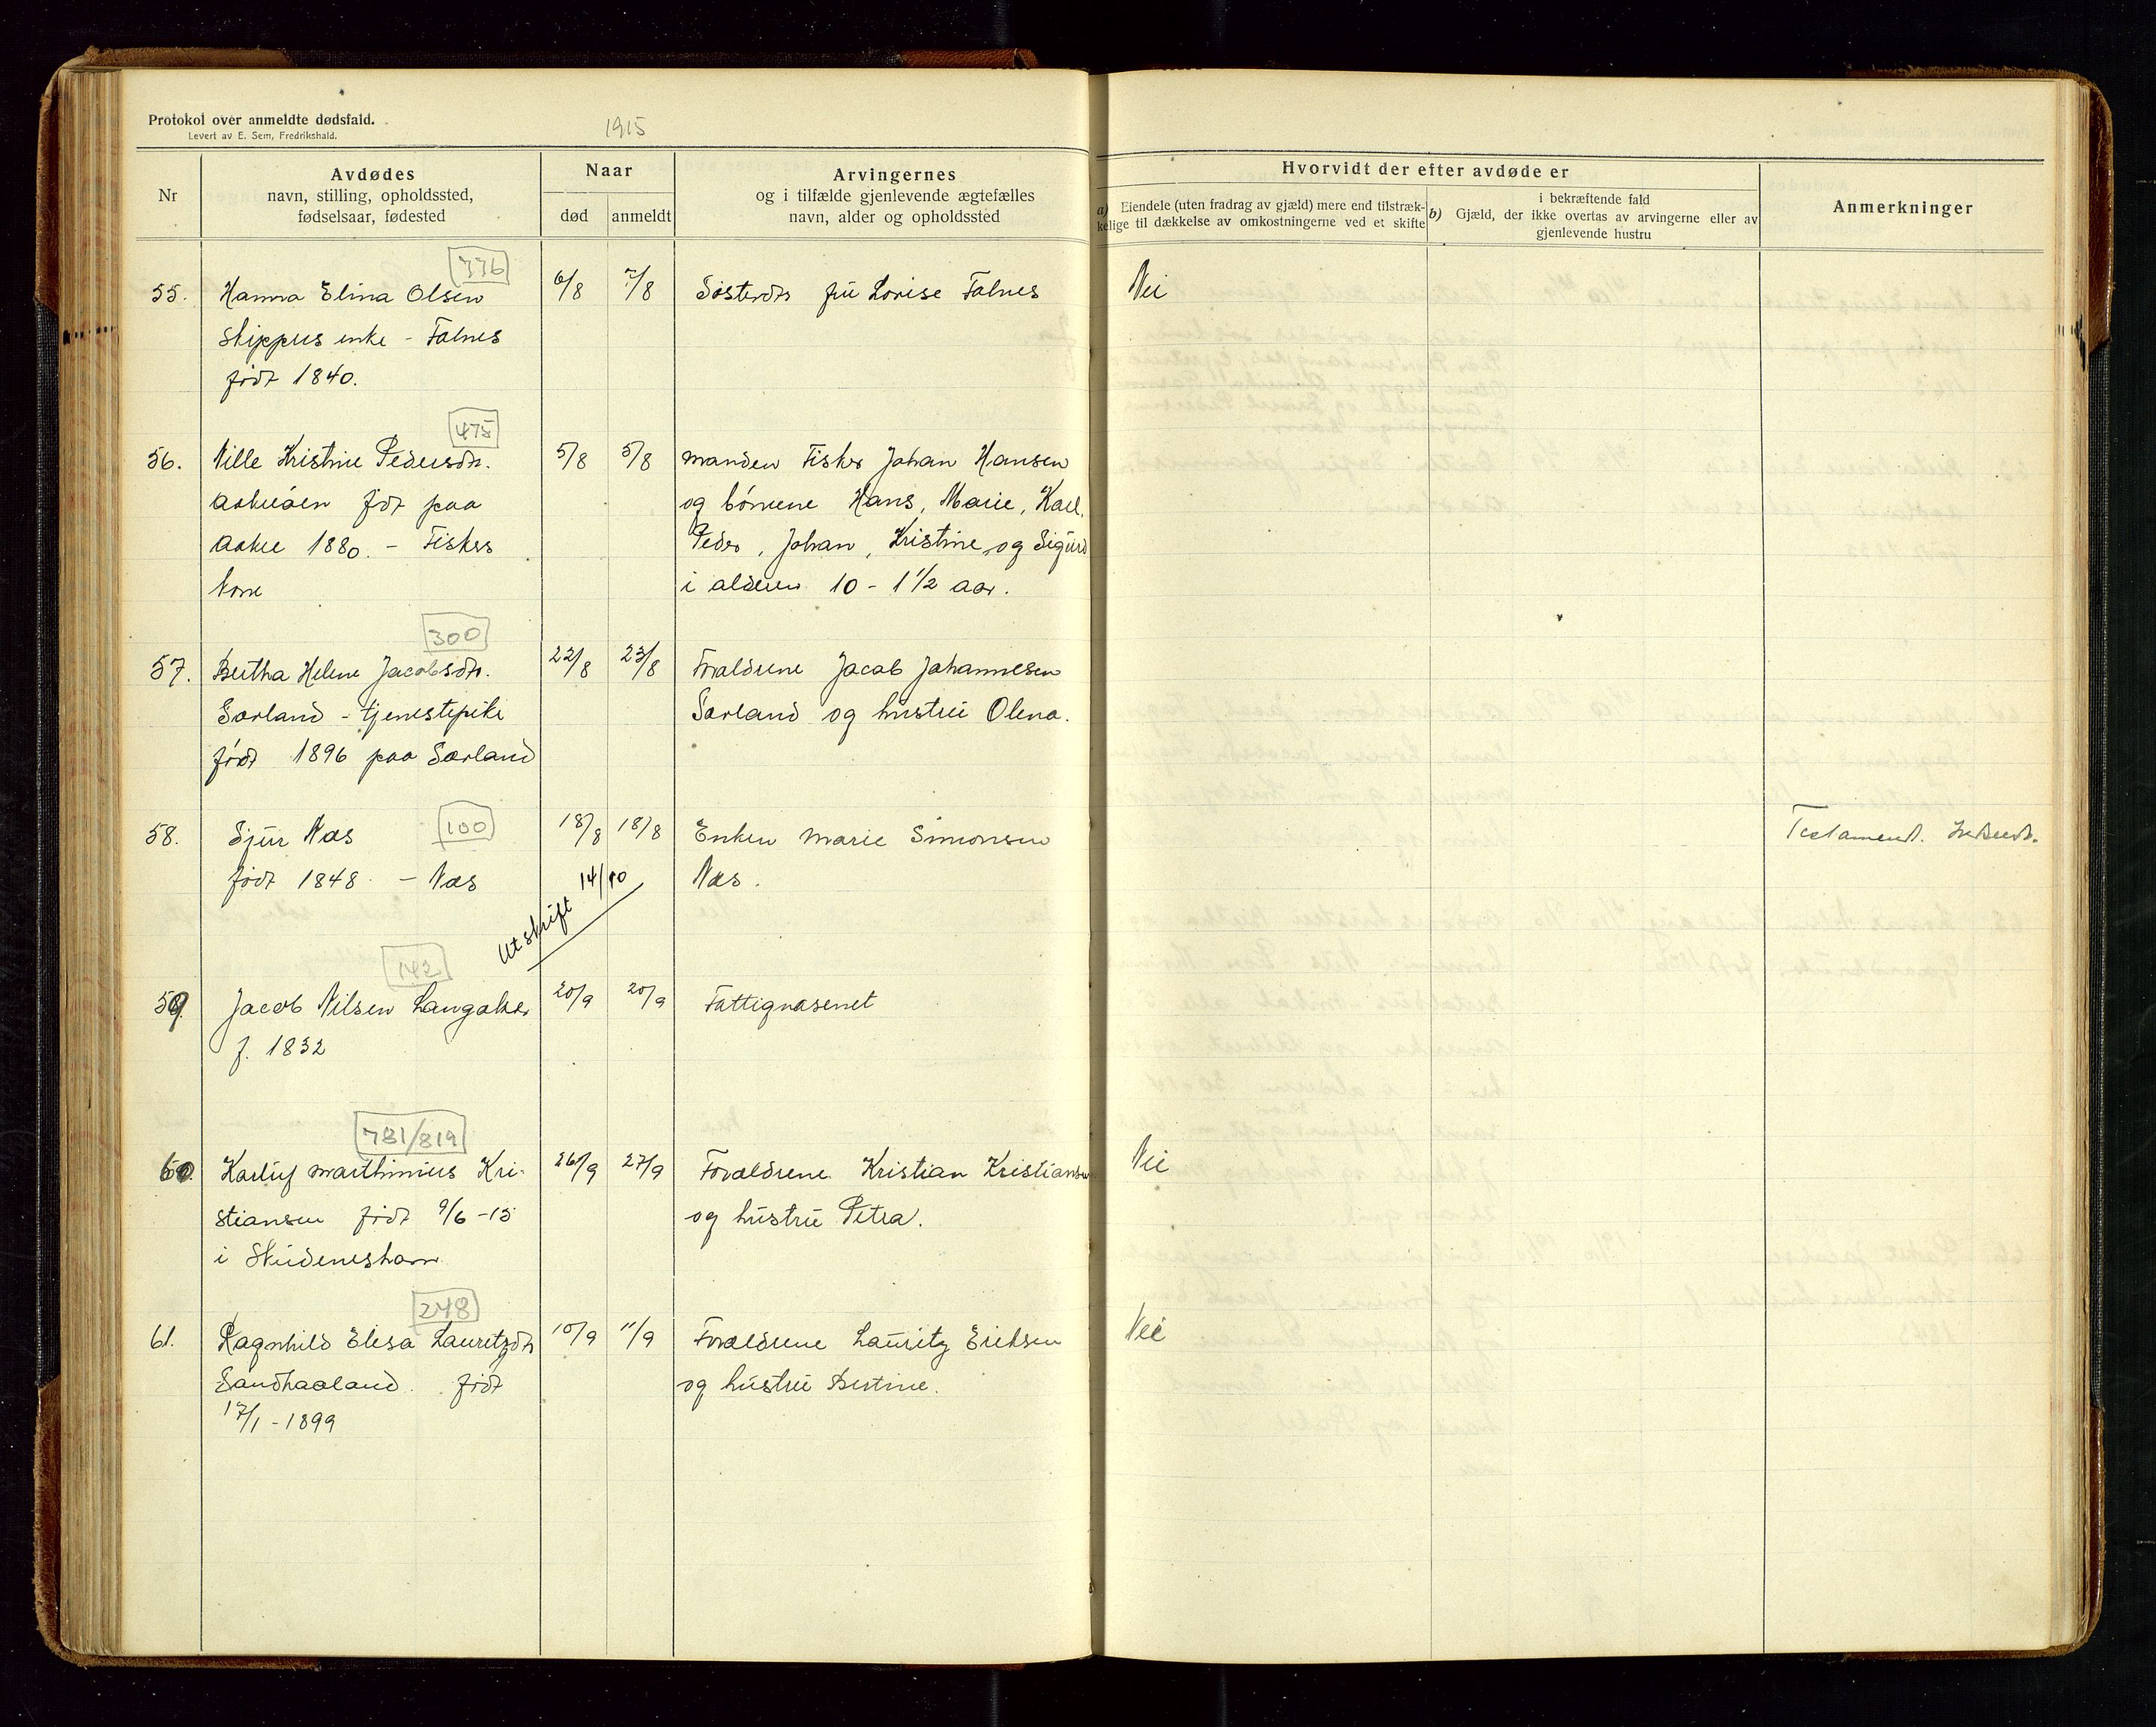 Protokol over anmeldte dødsfald.
Levert av E. Sem, Fredrikshald.
1915
Nr
Avdødes
navn, stilling, opholdssted,
fødselsaar, fødested
Naar
død
anmeldt
Arvingernes
og i tilfælde gjenlevende ægtefælles
navn, alder og opholdssted
Hvorvidt der efter avdøde er
a) Eiendele (uten fradrag av gjæld) mere end tilstræk-
kelige til dækkelse av omkostningerne ved et skifte
i bekræftende fald
b) Gjæld, der ikke overtas av arvingerne eller av
gjenlevende hustru
Anmerkninger
336
55. Hanna Elina Olsen 6/8 7/8 Søsterdtr fru Lovise Falnes Nei
skippers enke - Falnes
født 1840.
475
56. Nille Kristine Pedersdtr. 5/8 5/8 manden Fisker Johan Hansen
født paa og børnene Hans, Marie, Karl,
1880. - Fiskers Peder, Johan, Kristine og Sigurd
kone i alderen 10 - 1 1/2 aar.
300
57. Bertha Helene Jacobsdtr. 22/8 23/8 Forældrene Jacob Johannesen
Sørland - tjenestepike Sørland og hustru Olena.
født 1896 paa Sørland
58. Sjur Næs 100 18/8 18/8 Enken Marie Simonsen Testament.
født 1848. - Næs Næs.
Utskrift 14/10
142
59. Jacob Nilsen Langaker 20/9 20/9 Fattigvæsenet
f. 1832
781/819
60. Karluf Marthinius Kri- 26/9 27/9 Forældrene Kristian Kristiansen Nei
stiansen født 9/6 - 15 og hustru Petra.
i Skudeneshavn
248
61. Ragnhild Elesa Lauritzdtr 10/9 11/9 Forældrene Lauritz Eriksen Nei
Sandhaaland. født og hustru Bertine.
17/1 - 1899